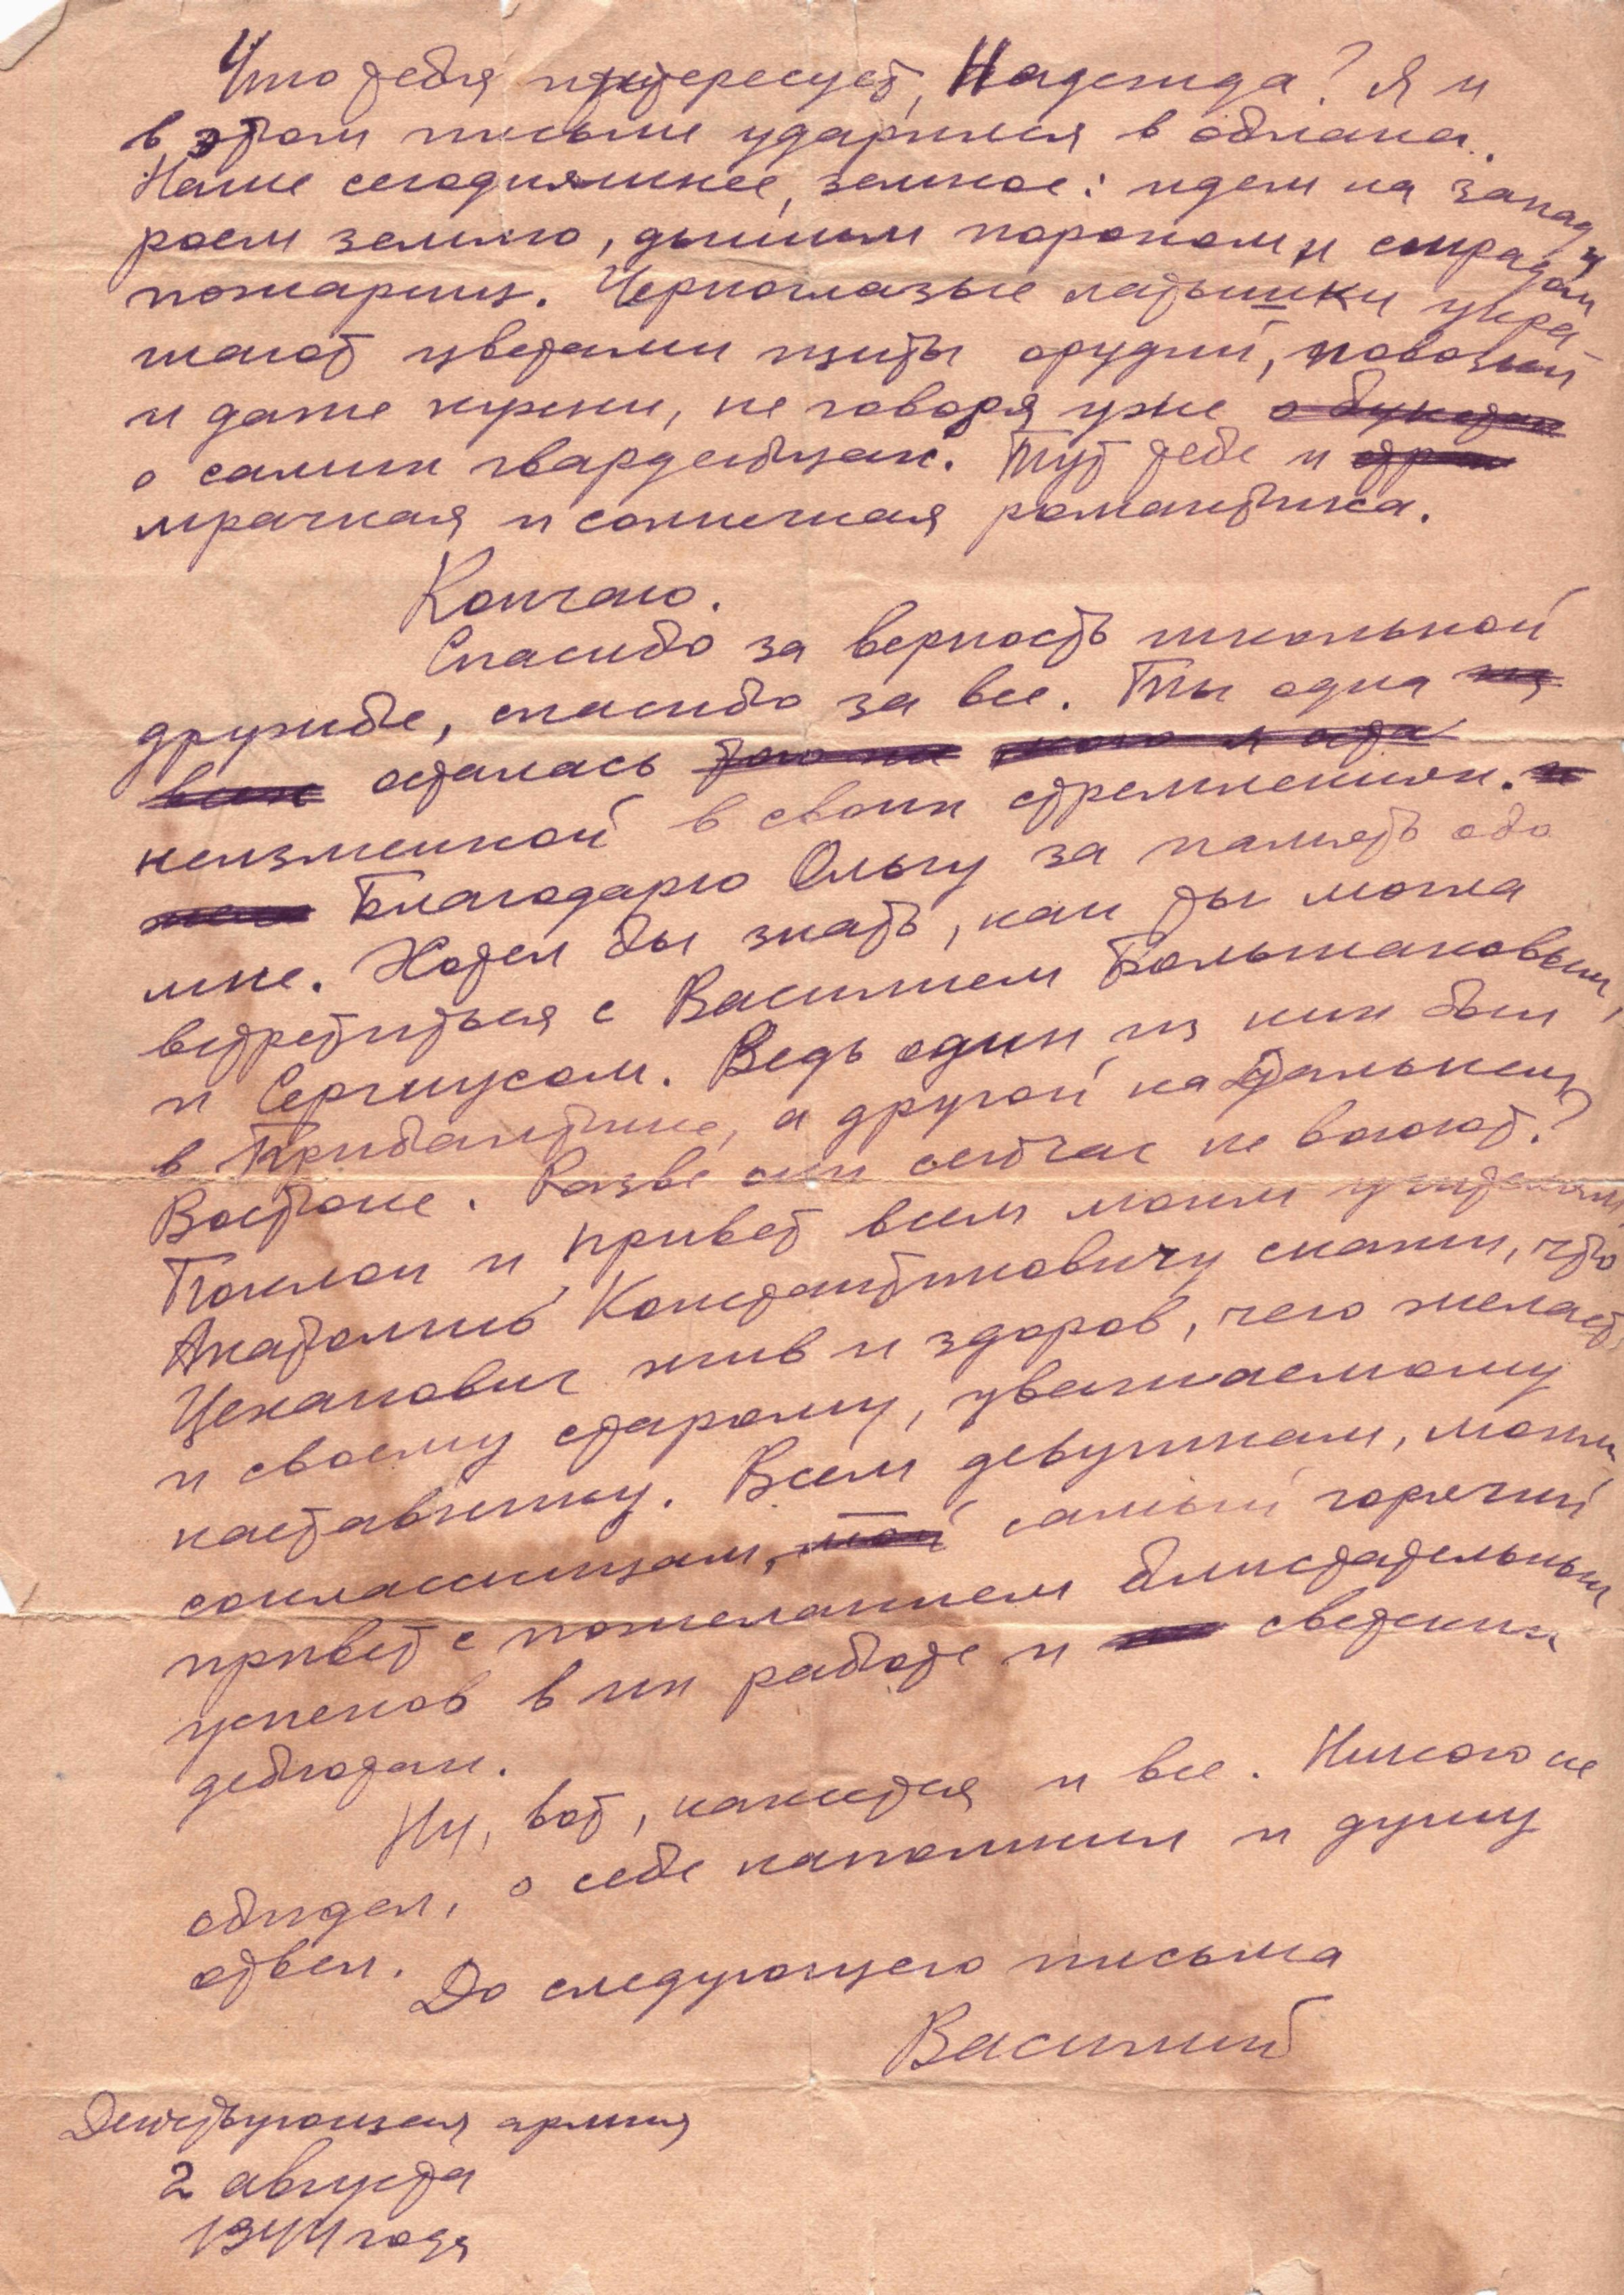 Что тебя интересует, Надежда? Я и
в этом письме ударился в облака.
Наше сегодняшнее, земное: идем на запад,
роем землю, дышим порохом и смрадом
пожарищ. Черноглазые латышки укра
шают цветами щиты орудий, повозки
и даже кухни, не говоря уже о букетах
о самих гвардейцах. Тут тебе и
мрачная и солнечная романтика.
Кончаю.
Спасибо за верность школьной
дружбе, спасибо за все. Ты одна из
всех осталась
неизменной в своих стремлениях. и
Благодарю Ольгу за память обо
мне. Хотел бы знать, как ты могла
встретиться с Василием Большаковым,
и Сергиусом. Ведь один из них был
в Прибалтике, а другой на Дальнем
Востоке. Разве они сейчас не воюют?
Поклон и привет всем моим учителям
Анатолию Константиновичу скажи, что
Цеханович жив и здоров, чего желает
и своему старому, уважаемому
наставнику. Всем девушкам, моим
соклассницам, мой самый горячий
привет с пожеланием блистательных
успехов в их работе и сведении
дебютах.
Ну, вот, кажется и все. Никого не
обидел, о себе напомнил и душу
отвел.
До следующего письма
Василий
Действующая армия
2 августа
1944 года